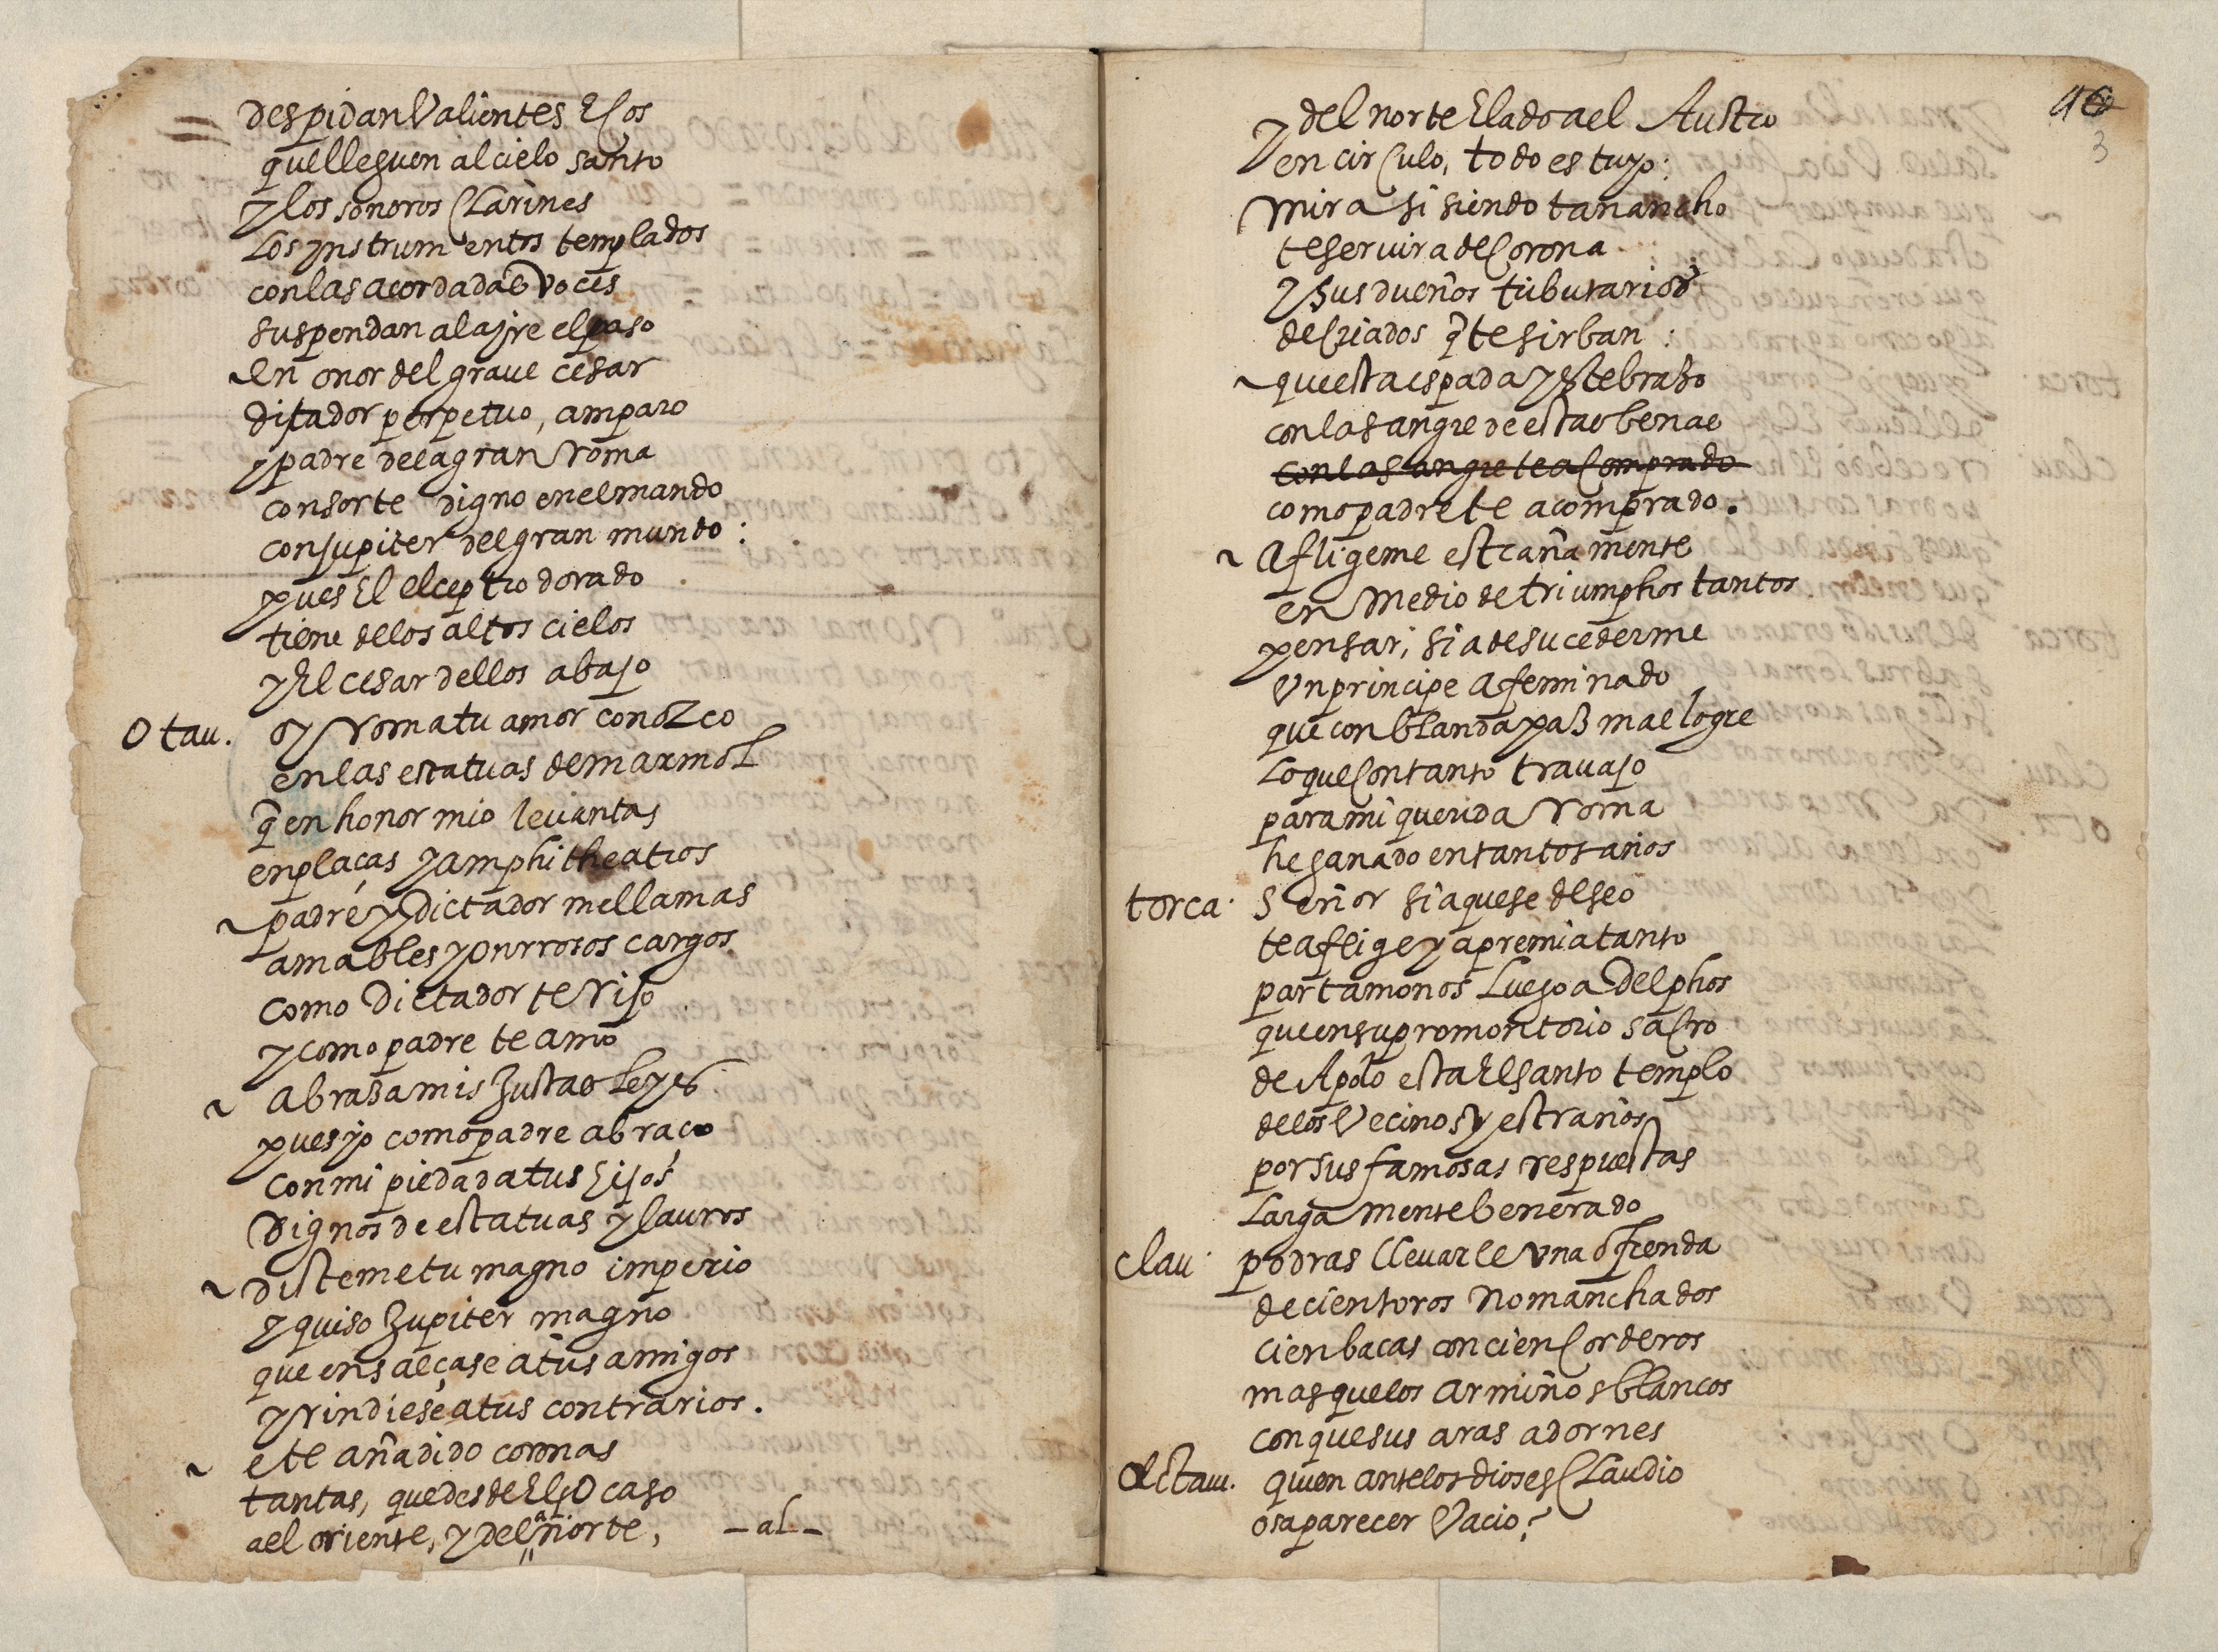 despidan Valientes Ecos
que lleguen al cielo santo
y los sonoros Clarines
Los ynstrumentos templados
con las acordadas voces
suspendan al ayre el paso
~ En onor del graue cesar
ditador perpetuo, amparo
y padre de la gran Roma
consorte digno en el mando
con jupiter del gran mundo:
pues El el ceptro dorado
tiene de los altos cielos
y El cesar dellos abajo
Otau. oy Roma tu amor conozco
en las estatuas de marmol
q̃ en honor mio leuantas
en plaças y amphitheatros
~ padre y Dictador me llamas
amables y onrrosos cargos
como Dictador te Rijo
y como padre te amo
~ abrasa mis Justas Leyes
pues yo como padre abraço
con mi piedad a tus hijos
Dignos de estatuas y lauros
~ disteme tu magno imperio
y quiso Jupiter magno
que ensalçase a tus amigos
y rindiese a tus contrarios.
~ e te añadido coronas
tantas, que desde El Ocaso
a el oriente, y del norte, – al –
4
3
y del norte Elado a el Austro
en circulo, todo es tuyo:
Mira si siendo tan ancho
te seruira de Corona
y sus dueños tributarios
de Criados q̃ te sirban:
~ que esta espada y Este braço
con la sangre de estas benas
con la sangre te a Comprado
como padre te a comprado.
~ Afligeme estrañamente
en Medio de triumphos tantos
pensar, si a de sucederme
Un principe afeminado
que con blanda paz malogre
Lo que Con tanto trauajo
para mi querida Roma
he ganado en tantos años
torca. Señor si aquese deseo
te aflige y apremia tanto
partamonos Luego a Delphos
que en su promontorio sacro
de Apolo esta El santo templo
de los Vecinos y estraños
por sus famosas respuestas
Largamente benerado
Clau. podras llevarle una ofrenda
de cien toros no manchados
cien bacas con cien Corderos
mas que los armiños blancos
con que sus aras adornes
Octau. quien ante los dioses Claudio
osa parecer Vacio?